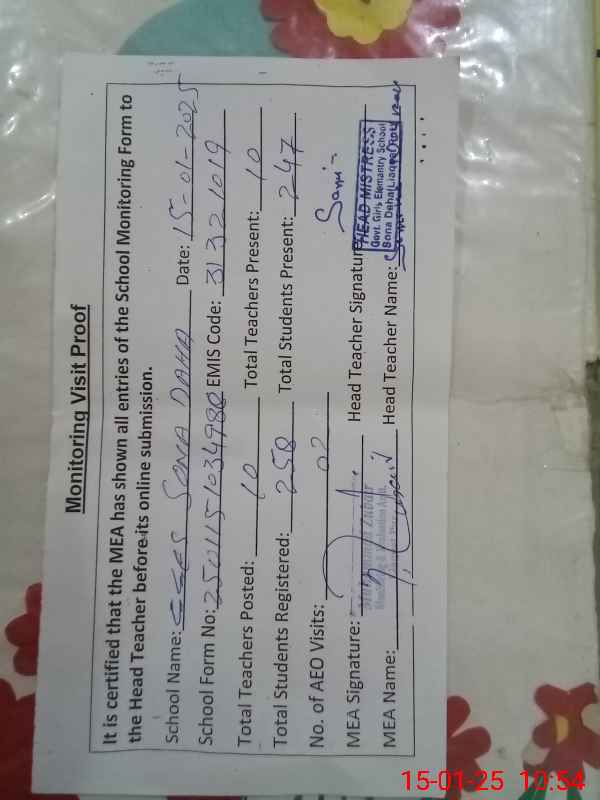 Monitoring Visit Proof
It is certified that the MEA has shown all entries of the School Monitoring Form to
the Head Teacher before its online submission.
School Name: GGES SONA DAHA Date: 15-01-2025
School Form No: 250115103498 EMIS Code: 31321019
Total Teachers Posted: 10 Total Teachers Present: 10
Total Students Registered: 258 Total Students Present: 247
No. of AEO Visits: 02
MEA Signature: Head Teacher Signature
HEAD MISTRESS
Govt. Girls Elemantry School
MEA Name: Head Teacher Name:
15-01-25 10:54